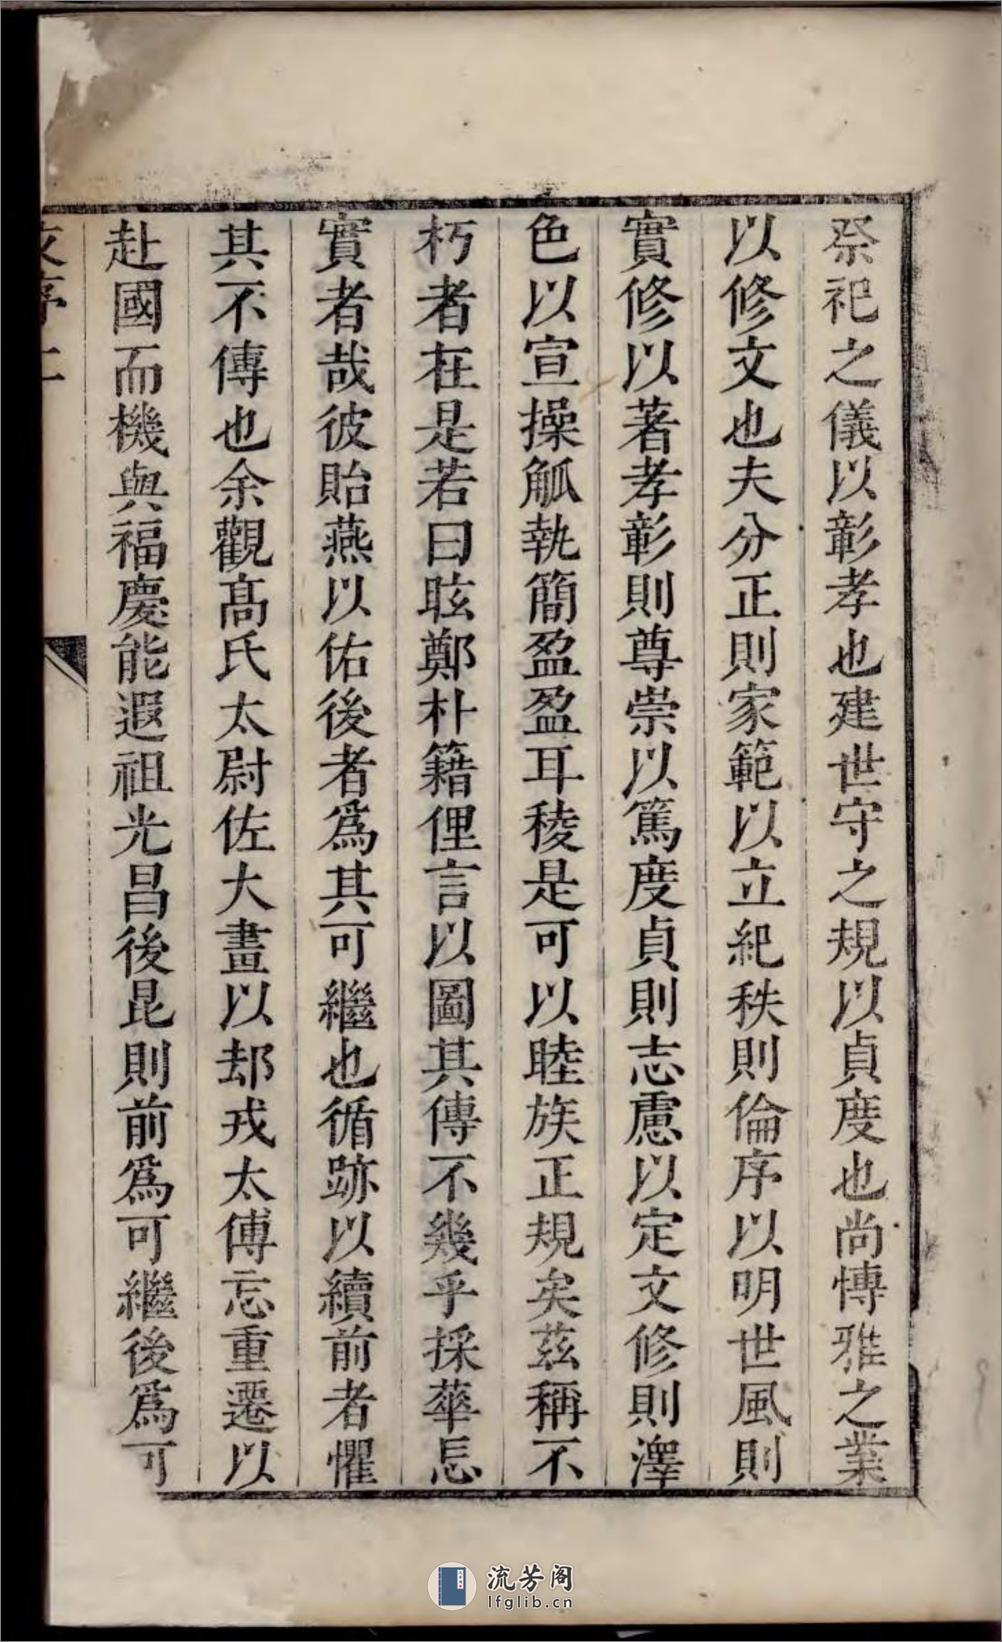 祭祀之儀以彰孝也建世守之規以貞度也尚慱雅之業
以修文也夫分正則家範以立紀秩則倫序以明世風則
實修以著孝彰則尊崇以篤度貞則志慮以定文修則澤
色以宣操觚執簡盈盈耳稜是可以睦族正規矣茲稱不
朽者在是若曰昡鄭朴籍俚言以圖其傳不幾乎採華忘
實者哉彼貽燕以佑後者爲其可繼也循跡以續前者懼
其不傳也余觀高氏太尉佐大畫以却戎太傅忘重遷以
赴國而機與福慶能遐祖光昌後昆則前爲可繼後爲可
流芳阁
lfglib.cn